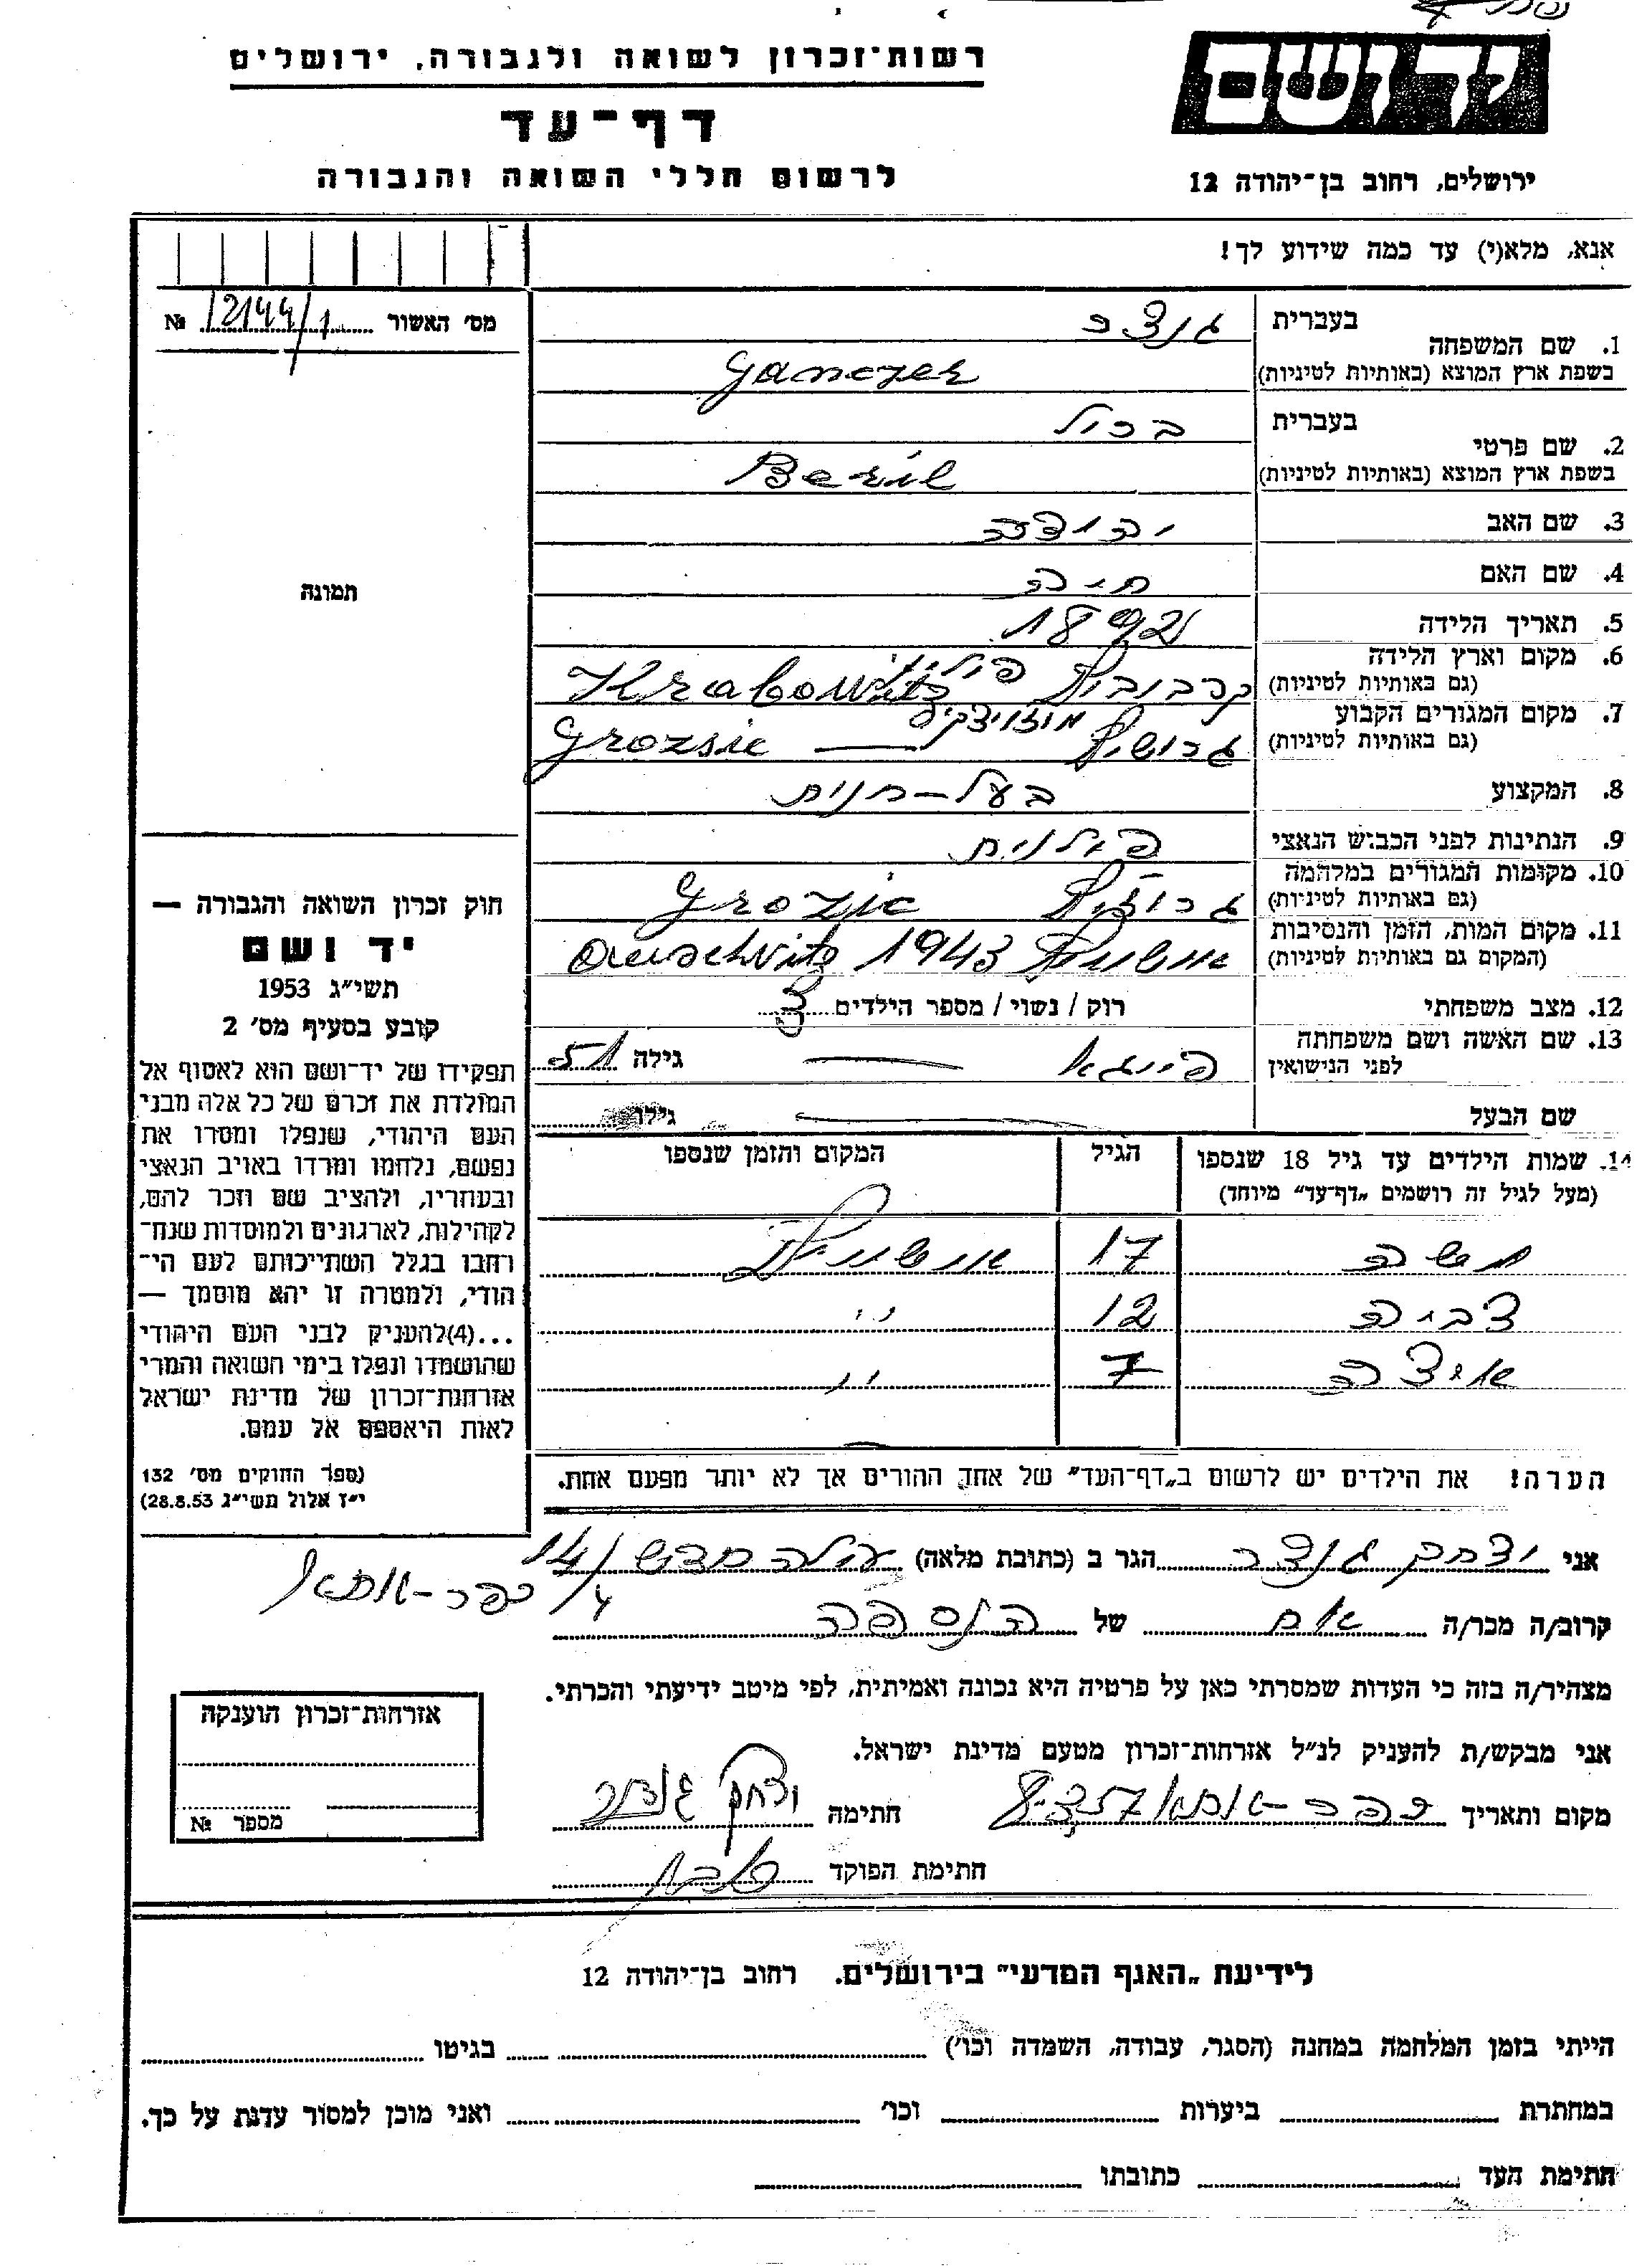 יד ושם
רשות־זכרון לשואה ולגבורה, ירושלים
דף־עד
לרשום חללי השואה והגבורה
ירושלים, רחוב בן־יהודה 12
אנא, מלא(י) עד כמה שידוע לך!
מס׳ האשור 12144/1 №
תמונה
1. שם המשפחה בעברית גנצר
בשפת ארץ המוצא (באותיות לטיניות) Ganczer
2. שם פרטי בעברית בריל
בשפת ארץ המוצא (באותיות לטיניות) Beril
3. שם האב יהודה
4. שם האם חיה
5. תאריך הלידה 1892
6. מקום וארץ הלידה
(גם באותיות לטיניות) פולין Krabowitz
7. מקום המגורים הקבוע
(גם באותיות לטיניות) Grozsic
8. המקצוע בעל-חנות
9. הנתינות לפני הכבוש הנאצי פולנית
10. מקומות המגורים במלחמה
(גם באותיות לטיניות) Grozic
11. מקום המות, הזמן והנסיבות
(המקום גם באותיות לטיניות) אושוויץ 1943 Auschvitz
12. מצב משפחתי רוק / נשוי / מספר הילדים 3
13. שם האשה ושם משפחתה
לפני הנישואין פייגא גילה 51
שם הבעל גילו
14. שמות הילדים עד גיל 18 שנספו הגיל המקום והזמן שנספו
(מעל לגיל זה רושמים „דף־עד" מיוחד)
משה 17 אושוויץ
צביה 12 "
איצה 7 "
הערה! את הילדים יש לרשום ב„דף־העד" של אחד ההורים אך לא יותר מפעם אחת.
חוק זכרון השואה והגבורה —
יד ושם
תשי״ג 1953
קובע בסעיף מס׳ 2
תפקידו של יד־ושם הוא לאסוף אל
המולדת את זכרם של כל אלה מבני
העם היהודי, שנפלו ומסרו את
נפשם, נלחמו ומרדו באויב הנאצי
ובעוזריו, ולהציב שם וזכר להם,
לקהילות, לארגונים ולמוסדות שנח־
רחבו בגלל השתייכותם לעם הי־
הודי, ולמטרה זו יהא מוסמך —
...(4)להעניק לבני העם היהודי
שהושמדו ונפלו בימי השואה והמרי
אזרחות־זכרון של מדינת ישראל
לאות היאספם אל עמם.
(ספר החוקים מס׳ 132
י״ז אלול תשי״ג 28.8.53)
אני יצחק גנצר הגר ב (כתובת מלאה) עולה חדש 14/4 כפר-אתא
קרוב/ה מכר/ה אח של הנספה
מצהיר/ה בזה כי העדות שמסרתי כאן על פרטיה היא נכונה ואמיתית, לפי מיטב ידיעתי והכרתי.
אני מבקש/ת להעניק לנ״ל אזרחות־זכרון מטעם מדינת ישראל.
מקום ותאריך כפר-אתא חתימה יצחק גנצר
חתימת הפוקד
אזרחות־זכרון הוענקה
מספר №
לידיעת „האגף המדעי" בירושלים. רחוב בן־יהודה 12
הייתי בזמן המלחמה במחנה (הסגר, עבודה, השמדה וכו׳) בגיטו
במחתרת ביערות וכו׳ ואני מוכן למסור עדות על כך.
חתימת העד כתובתו